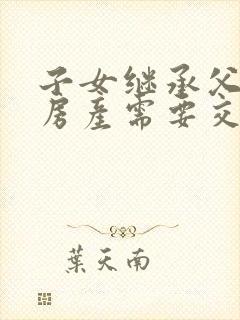 子女继承父
房产需要交
葉天南